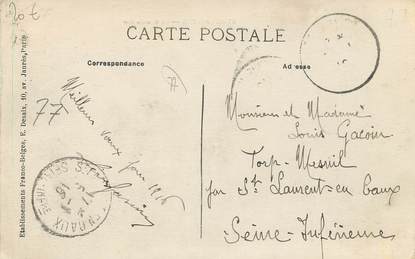 20€
CARTE POSTALE
Correspondance
Adresse
77
77
Meilleurs vœux pour 1918
Monsieur et Madame
Louis
Torp-Mesnil
par St Laurent-en Caux
Seine-Inférieure
Etablissements Franco-Belges, E. Desaix, 40, av. Jaurès, Paris